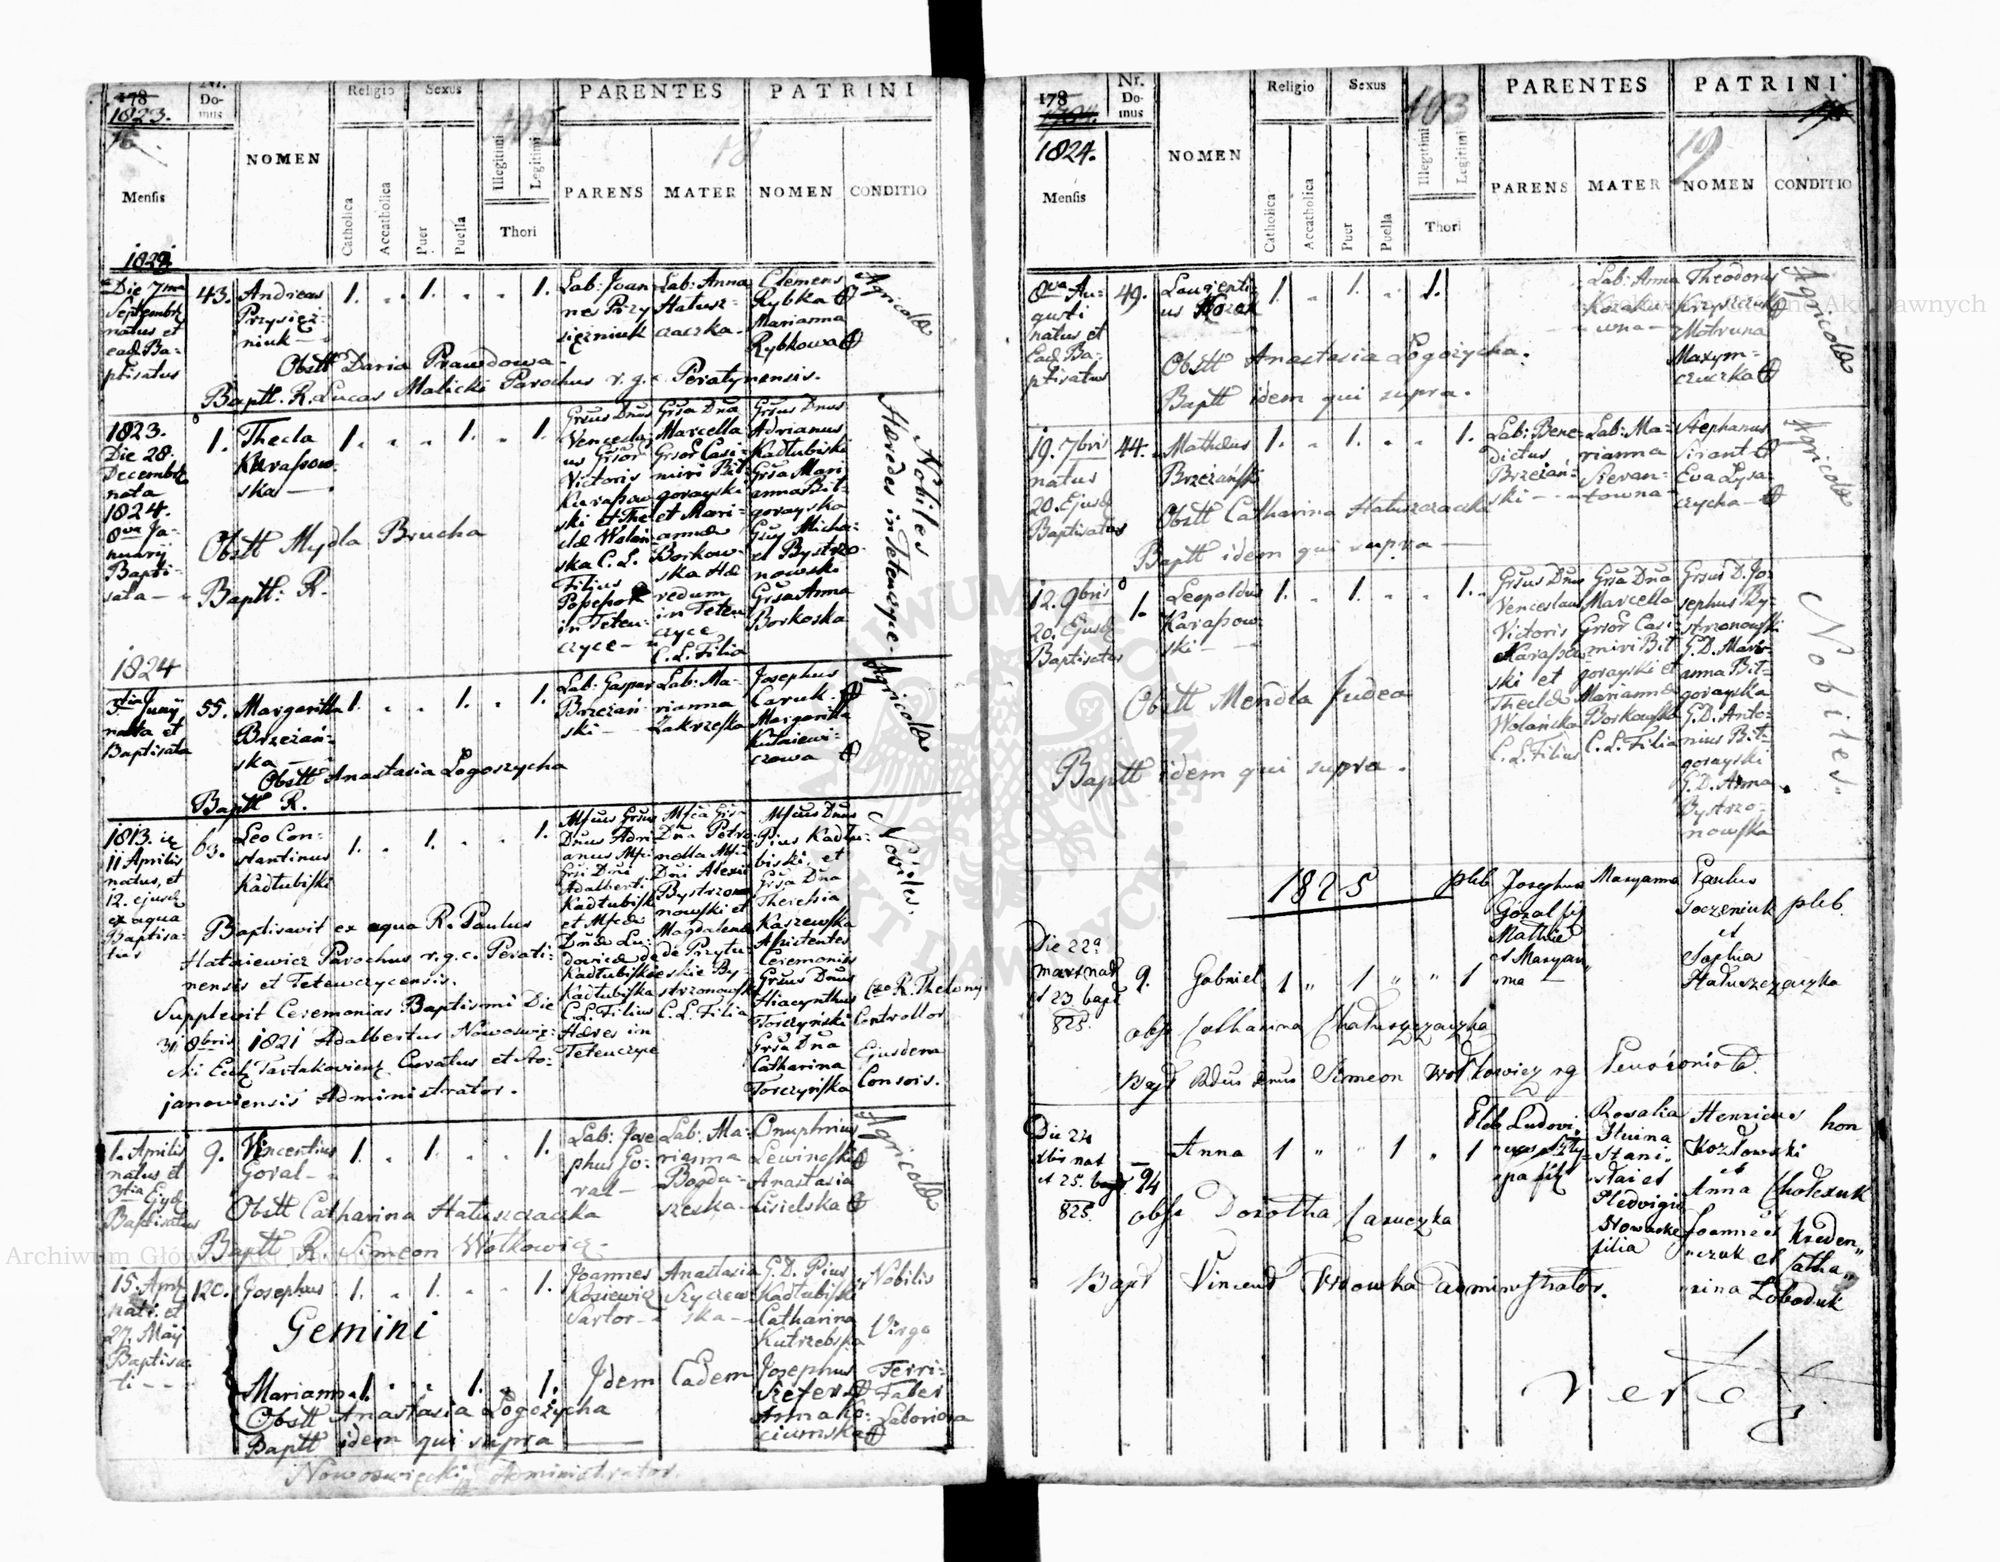 178
1823.
Nr. Domus
NOMEN
Religio
Sexus
PARENTES
PATRINI
Mensis
Catholica
Accatholica
Puer
Puella
Illegitimi
Legitimi
Thori
PARENS
MATER
NOMEN
CONDITIO
18
Die 7ma
Septembr
natus et
ead. Ba-
ptisatus
43.
Andreas
Przysięż-
niuk
1. 1. 1.
Lab: Joan
nes Przy
siężniuk
Lab: Anna
Hatusz-
czaczka
Clemens
Rybka
Marianna
Rybkowa
Agricolæ
Obstt Daria Prawdowa
Baptt. R. Lucas Malicki Parochus r. g. c. Peratynensis.
1823.
Die 28.
Decembr
nata
1824.
8va Ja-
nuarij
Bapti-
sata
1.
Thecla
Karassow-
ska
1. 1. 1.
Grsus Dnus
Vencesla-
us Grsor
Victoris
Karassow
ski et The
clæ Wolan
ska C. L.
Filius
Possessor
in Teten-
czyce
Grsa Dna
Marcella
Grsor Casi-
miri Bit-
gorayski
et Mari-
annæ
Borkow-
ska Hæ
redum
in Teten
czyce
C. L. Filia
Grsus Dnus
Adrianus
Kadłubiski
Grsa Mari
anna Bit-
gorayska
Gsy Micha-
el Bystrzo-
nowski
Grsa Anna
Borkoska
Nobiles
Hæredes in Tetenczyce
Obstt Mydla Brucha
Baptt: R.
1824
3tia Junij
nata et
Baptisata
55.
Margaritta
Brzezań-
ska
1. 1. 1.
Lab: Gaspar
Brzezań-
ski
Lab: Ma-
rianna
Zakrzeska
Josephus
Caruk
Margaritta
Kutaiewi-
czowa
Agricolæ
Obstt Anastasia Łogoszycha
Baptt R.
1813. ie
11 Aprilis
natus, et
12. ejusd
ex aqua
Baptisa-
tus
63.
Leo Con-
stantinus
Kadłubiski
1. 1. 1.
Mfcus Grsus
Dnus Adri
anus Mfci
Grsi Dni
Adalberti
Kadłubisk
et Mfcæ
Dnæ Lu-
dovicæ de
Kadłubiskie
Kadłubiska
C. L. Filius
Hæres in
Tetenczyce
Mfca Grsa
Dna Petro
nella Mfci
Dni Alexii
Bystrzono
nowski et
Magdalenæ
de Przytu
eskie By-
strzonowska
C. L. Filia
Mfcus Dnus
Pius Kadłu-
biski, et
Grsa Dna
Therchia
Kaszewska
Assistentes
Ceremoniis
Grsus Dnus
Hiacynthus
Torczyński
Grsa Dna
Catharina
Torczyńska
Nobiles.
Controllor
Ejusdem
Consors.
Baptisavit ex aqua R. Paulus
Hataiewicz Parochus r. g. c. Perati-
nensis et Tetewczycensis.
Supplevit Ceremonias Baptismi Die
31 8bris 1821 Adalbertus Nowoswię-
cki Eccl Tartakoviens Curatus et Sto-
janoviensis Administrator.
1. Aprilis
natus et
3tia Ejusd
Baptisatus
9.
Vincentius
Goral
1. 1. 1.
Lab: Jose
phus Go-
ral
Lab: Ma-
rianna
Bogda-
szeska
Onuphrius
Lewinoski
Anastasia
Lisielska
Agricolæ
Obstt Catharina Hatuszczaczka
Baptt R. Simeon Wołkowicz.
15. Apr
nati et
27. Maij
Baptisa-
ti
120.
Josephus
1. 1. 1.
Joannes
Kosiewicz
Sartor
Anastasia
Szyczew
ska
G. D. Pius
Kadłubiski
Catharina
Kutrzebska
Nobilis
Virgo
Gemini
Marianna
1. 1. 1.
Idem
Eadem
Josephus
Szefers
Anna Ko-
ciumska
Ferri-
Faber
Laboriosa
Obstt Anastasia Łogożycha
Baptt idem qui supra
Nowoswięcki Administrator.
178
1824.
Mensis
Nr. Domus
NOMEN
Religio
Sexus
103
PARENTES
PATRINI
19
Catholica
Accatholica
Puer
Puella
Illegitimi
Legitimi
Thori
PARENS
MATER
NOMEN
CONDITIO
8va Au-
gusti
natus et
Ead. Ba-
ptisatus
49.
Laurenti-
us Kozak
1. 1. 1.
Lab: Anna
Kozaku-
wna
Theodorus
Krzyszczuk
Matruna
Maxym-
czuczka
Agricolæ
Obstt Anastasia Łogożycha.
Baptt idem qui supra.
19. 7bris
natus
20. Ejusd
Baptisatus
44.
Mathæus
Brzezański
1. 1. 1.
Lab: Bene-
dictus
Brzezań-
ski
Lab: Ma-
rianna
Siran-
towna
Stephanus
Sirant
Eva Łysa-
czycha
Agricolæ
Obstt Catharina Hatuszczaczki
Baptt idem qui supra
12. 9bris
20. Ejusd
Baptisatus
1.
Leopoldus
Karassow-
ski
1. 1. 1.
Grsus Dnus
Venceslaus
Victoris
Karassow-
ski et
Theclæ
Wolańska
C. L. Filius
Grsa Dna
Marcella
Grsor Casi-
miri Bit
gorayski et
Mariannæ
Borkowska
C. L. Filia
Grsus D. Jo-
sephus By-
strzonowski
G. D. Mari-
anna Bit-
gorayska
G. D. Anto-
nius Bit-
gorayski
G. D. Anna
Bystrzo-
nowska
Nobiles
Obstt Mendla Judea
Baptt idem qui supra.
1825
Die 22a
mart nat
et 23. bapt
825.
9.
Gabriel
1 1 1
pleb
Josephus
Góral fil
Mathiæ
et Maryan
næ
Maryanna
Paulus
Toczeniuk
et
Sophia
Hatuszczaczka
pleb.
obst Catharina Chatuszczaczka
Bapt Rdus dnus Simeon Wołkowicz rg
Die 24
xbis nat
et 25. bapt
825.
94
Anna
1 1 1
Pleb Ludovi
Rosalia
Stani-
slai et
Hedvigis
Nowackie
filia
Henricus
Kozłowski
et
Anna Choleznk
Joannes Kreden
et Catha
rina Łoboduk
hon
obst Dorotha Caruczka
Bapt Vincent Wdowka administrator.
verte
Archiwum Główne Akt Dawnych
Archiwum Główne Akt Dawnych
ARCHIWUM GŁÓWNE AKT DAWNYCH